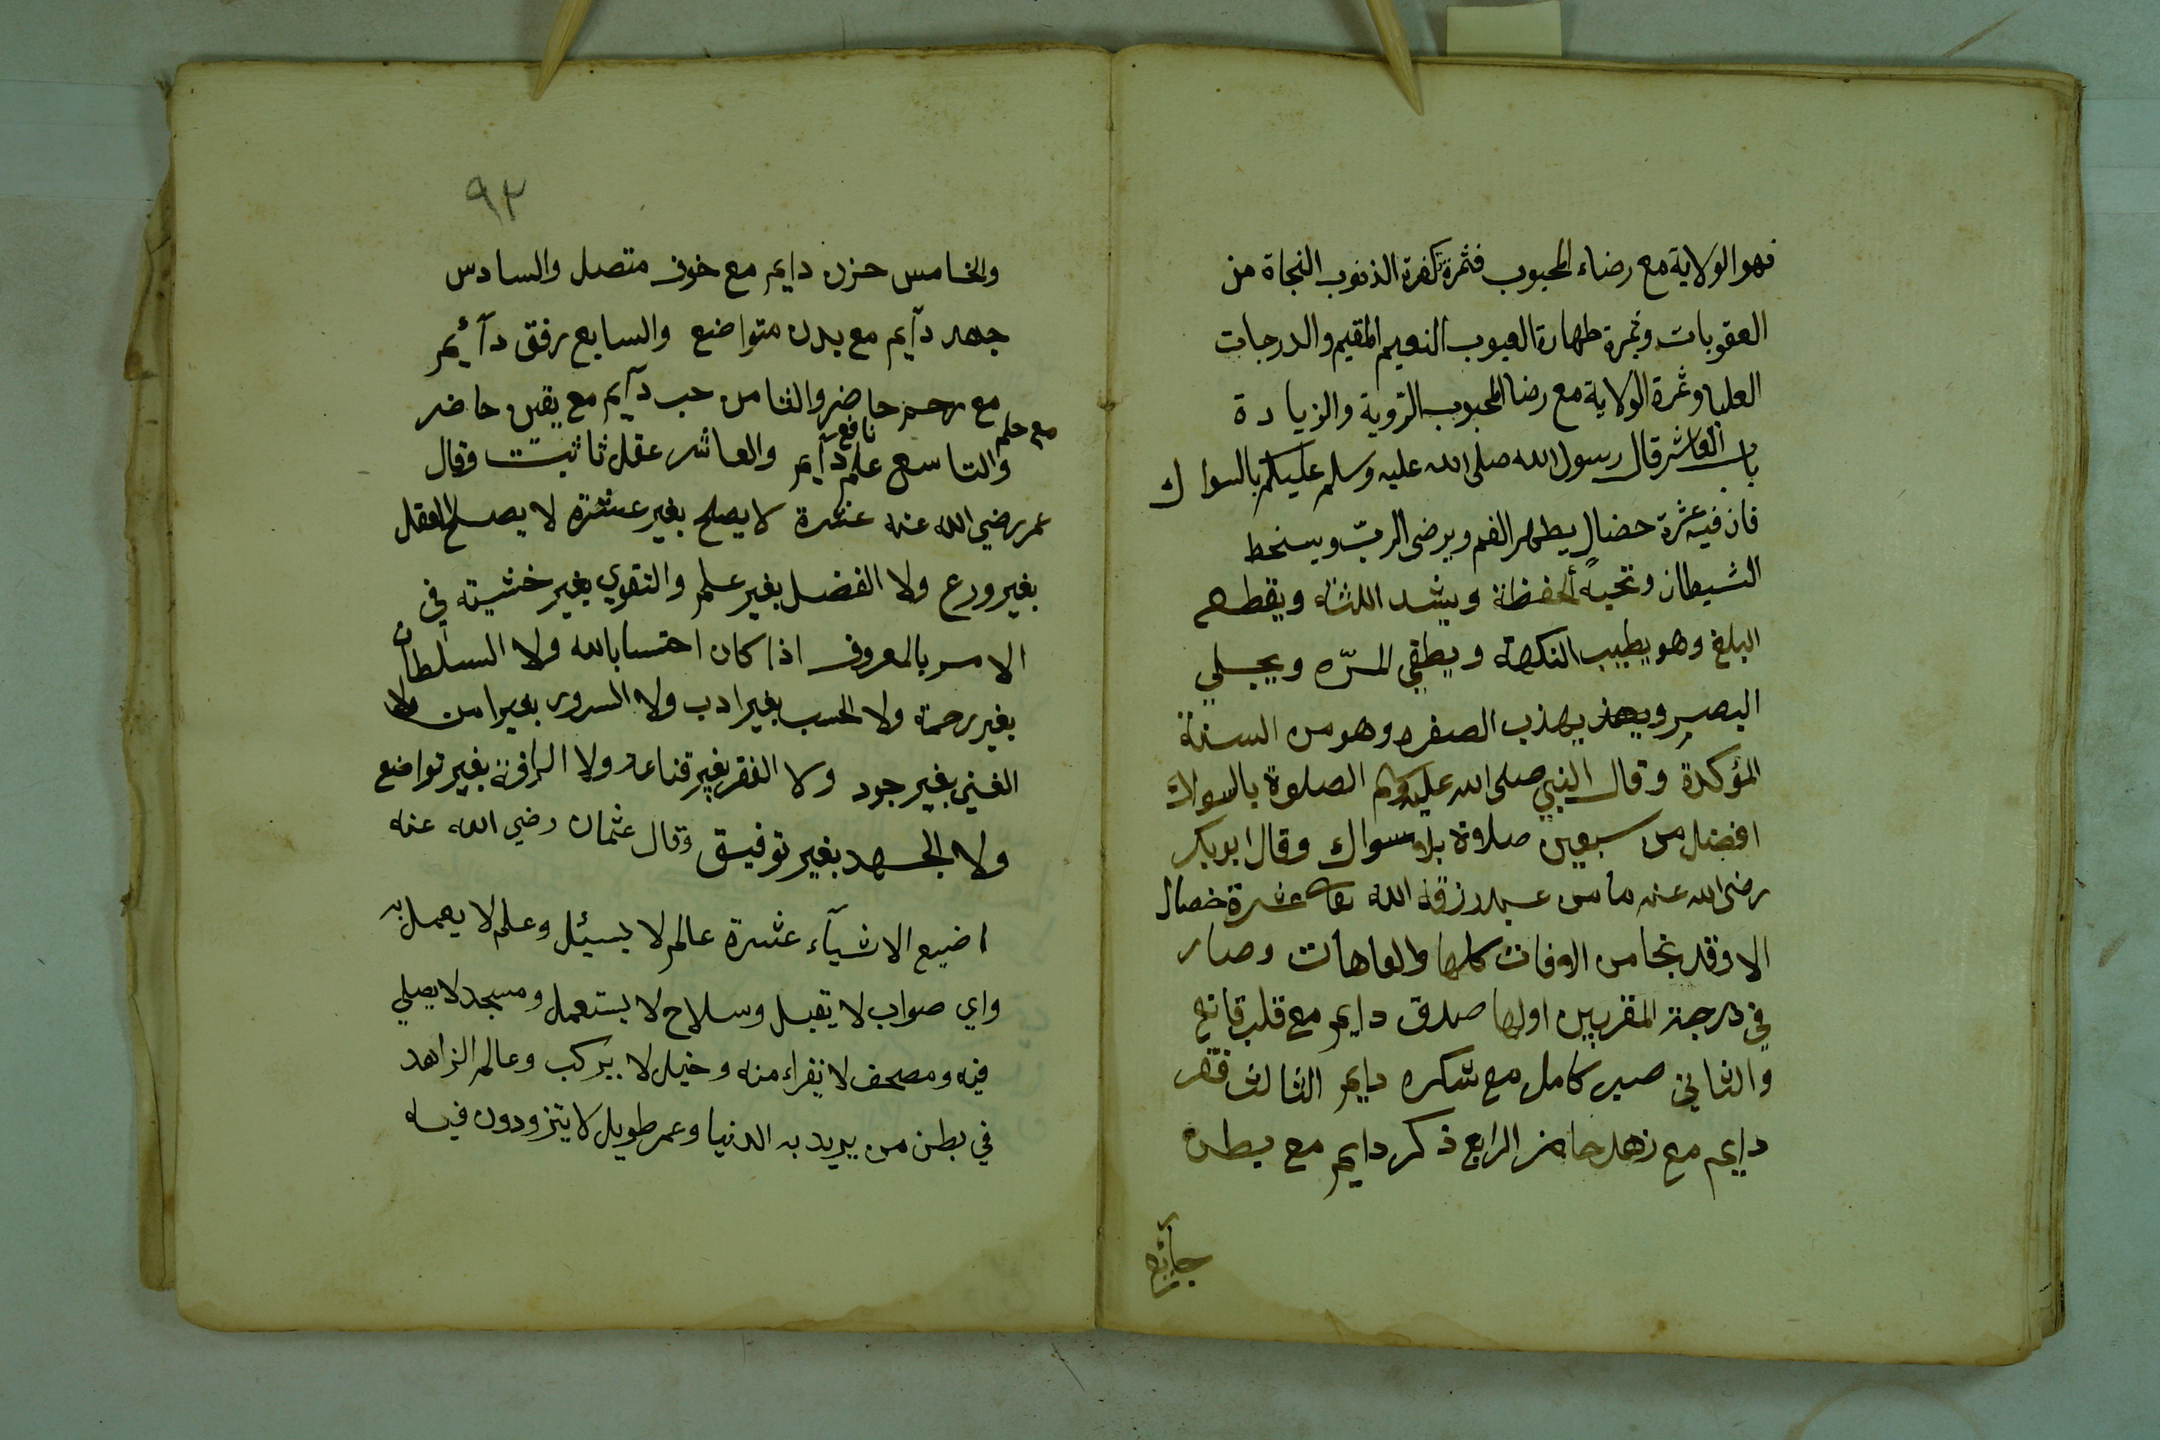 فهو الولاية مع رضاء المحبوب فثمرة كفرة الذنوب النجاة من
العقوبات وثمرة طهارة العيوب النعيم المقيم والدرجات
العليا وثمرة الولاية مع رضا المحبوب الرؤية والزيادة
باب العاشر قال رسول الله صلى الله عليه وسلم عليكم بالسواك
فان فيه عشرة خصال يطهر الفم ويرضى الرب ويسخط
الشيطان وتحبه الحفظة ويشد اللثة ويقطع
البلغم وهو يطيب النكهة ويطفي المرّه ويجلي
البصر يهذب الصفره وهو من السنة
المؤكدة وقال النبي صلى الله عليه وسلم الصلوة بالسواك
افضل من سبعين صلاوة بلا سواك وقال ابو بكر
رضى الله عنه ما من عبد رزقه الله عشرة خصال
الا وقد نجا من الافات كلها والعاهات وصار
في درجة المقربين اولها صدق دايم مع قلب قانع
والثاني صبر كامل مع شكره دايم الثالث فقر
دايم مع زهد حاضر الرابع ذكر دايم مع بطن
جآئع
٩٢
والخامس حزن دايم مع خوف متصل والسادس
جهد دآيم مع بدن متواضع والسابع رفق دآئيم
مع رحم حاضر والثامن حب دآيم مع يقين حاضر
مع حلم
والتاسع علم نافع دآيم والعاشر عقل ثابت وقال
عمر رضي الله عنه عشرة لا يصلح بغير عشرة لا يصلح العقل
بغير ورع ولا الفضل بغير علم والتقوي بغير خشيته في
الامر بالمعروف اذا كان احتسابا لله ولا السلطان
بغير رحمة ولا الحسب بغير ادب ولا السرور بغير امن ولا
الغني بغير جود ولا الفقر بغير قناعة ولا الرافة بغير تواضع
ولا الجهد بغير توفيق وقال عثمان رضي الله عنه
اضيع الاشيآء عشرة عالم لا يسيئل وعلم لا يعمل به
واي صواب لا تقبل وسلاح لا يستعمل ومسجد لا يصلي
فيه ومصحف لا يقراء منه وخيل لا يركب وعالم الزاهد
في بطن من يريد به الدنيا وعمر طويل لا يتزودون فيه